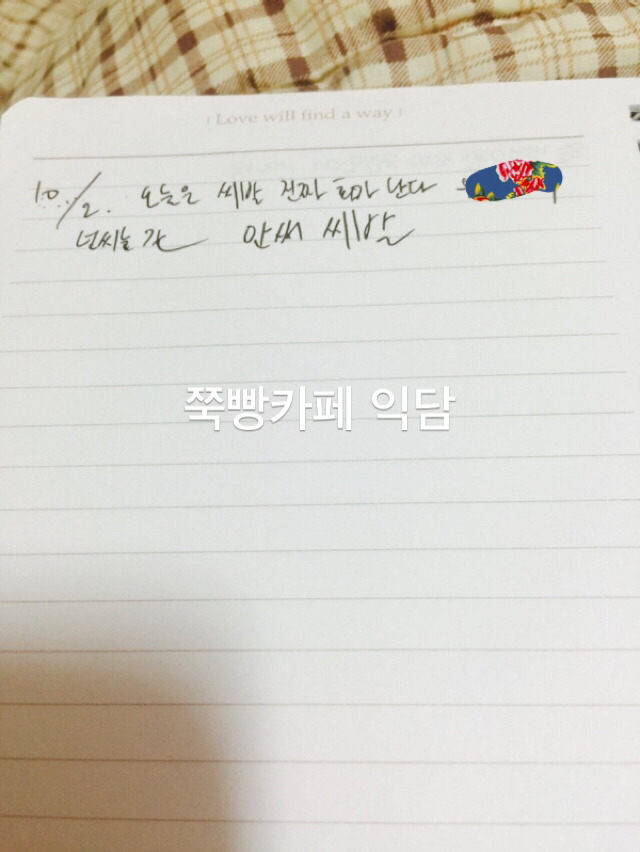 | Love will find a way |
10/2. 오늘은 씨발 진짜 화가 난다
날씨는 개 안써 씨발
쭉빵카페 익담